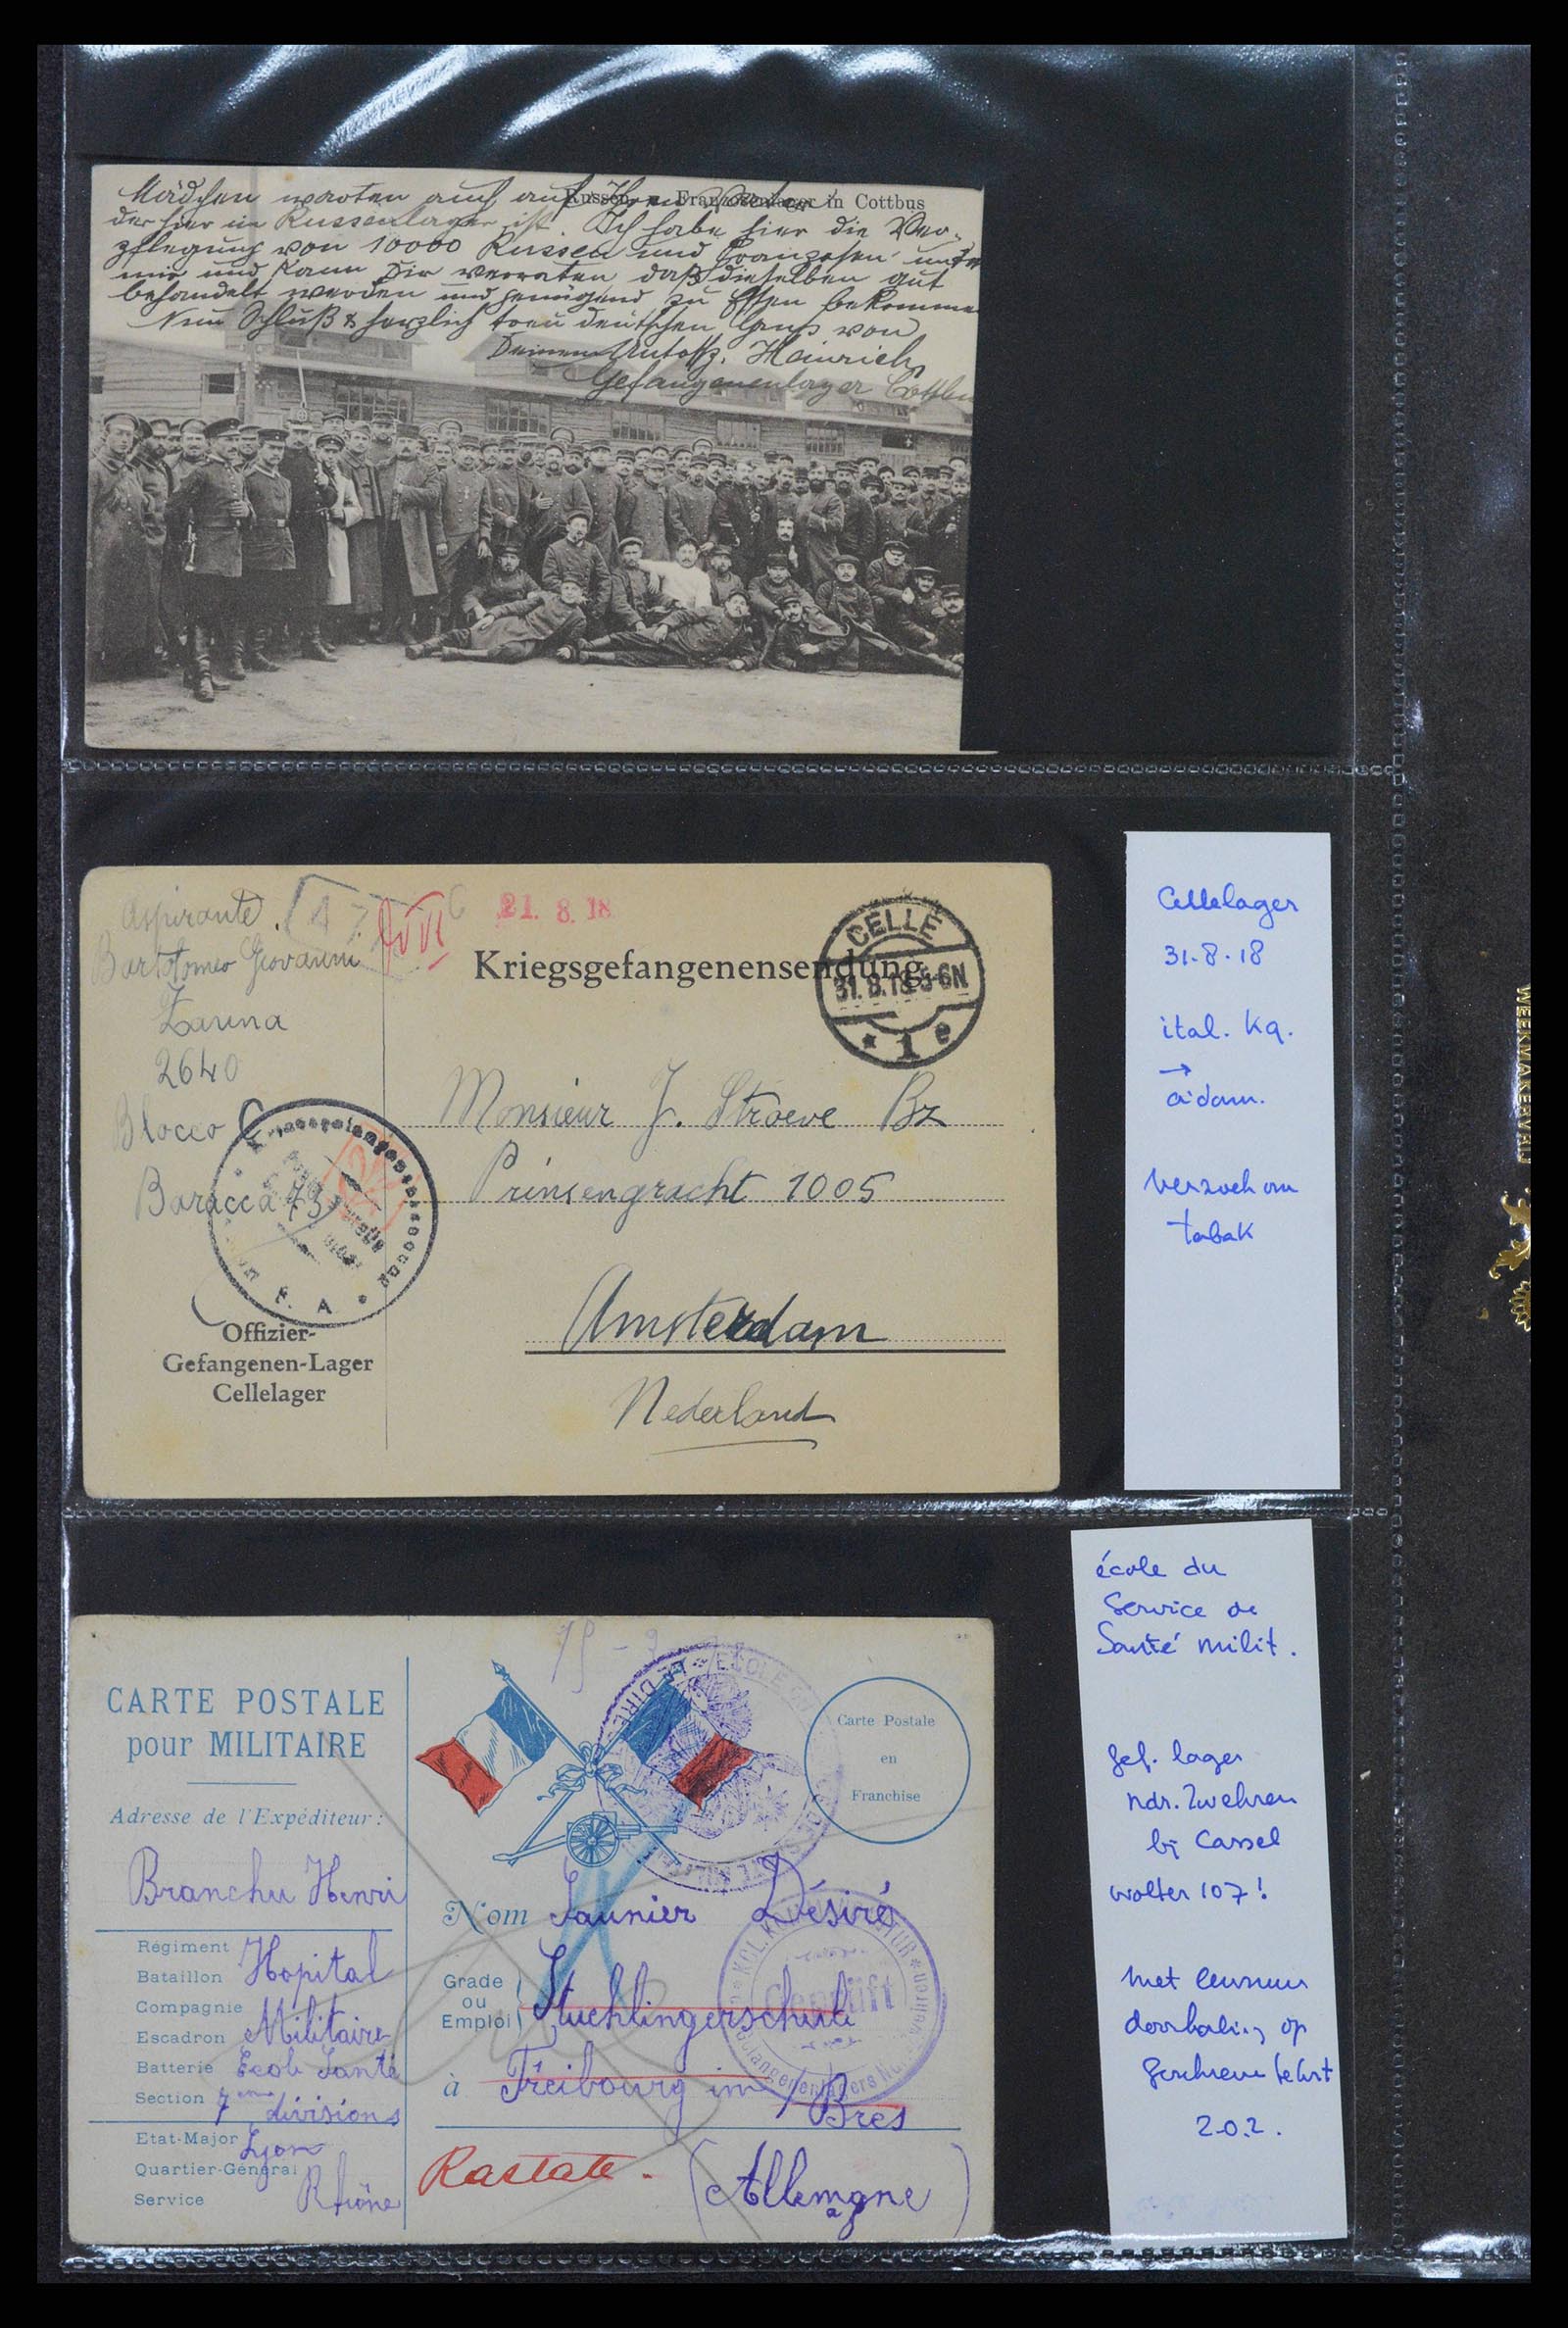 Mädchen warten auch auf Ihren
Russen u. Franzosenlager in Cottbus
der hier im Russenlager ist. Ich habe hier die Ver-
pflegung von 10000 Russen und Franzosen unter
mir und kann Dir verraten daß dieselben gut
behandelt werden und genügend zu Essen bekommen
Nun Schluß & herzlich treu deutschen Gruß von
Deinem Heinrich
Gefangenenlager Cottbus
Aspirante
Bartolomeo Giovanni
Zanna
2640
Blocco C
Baracca 73
21. 8. 18
Kriegsgefangenensendung
CELLE
31.8.18 5-6N
* 1 e
Monsieur J. Stroeve Bz
Prinsengracht 1005
Amsterdam
Nederland
F. A
Offizier-
Gefangenen-Lager
Cellelager
Cellelager
31.8.18
ital. Kg.
→
a'dam.
verzoek om
tabak
WEEKMAKERVRIJ
CARTE POSTALE
pour MILITAIRE
Adresse de l'Expéditeur :
Branchu Henri
Régiment
Bataillon
Compagnie
Escadron
Batterie
Section
Hopital
Militaire
Ecole Santé
7eme divisions
Etat-Major
Quartier-Général
Service
Lyon
Rhône
Carte Postale
en
Franchise
Nom Saunier Désiré
Grade
ou
Emploi
Stuehlingerschule
à Freibourg im / Bres
Rastate.
(Allemagne)
Geprüft
école du
Service de
Santé milit.
gef. lager
ndr. Zwehren
bij Cassel
wolter 107!
met censuur
doorhaling op
geschreven tekst
2.0.2.